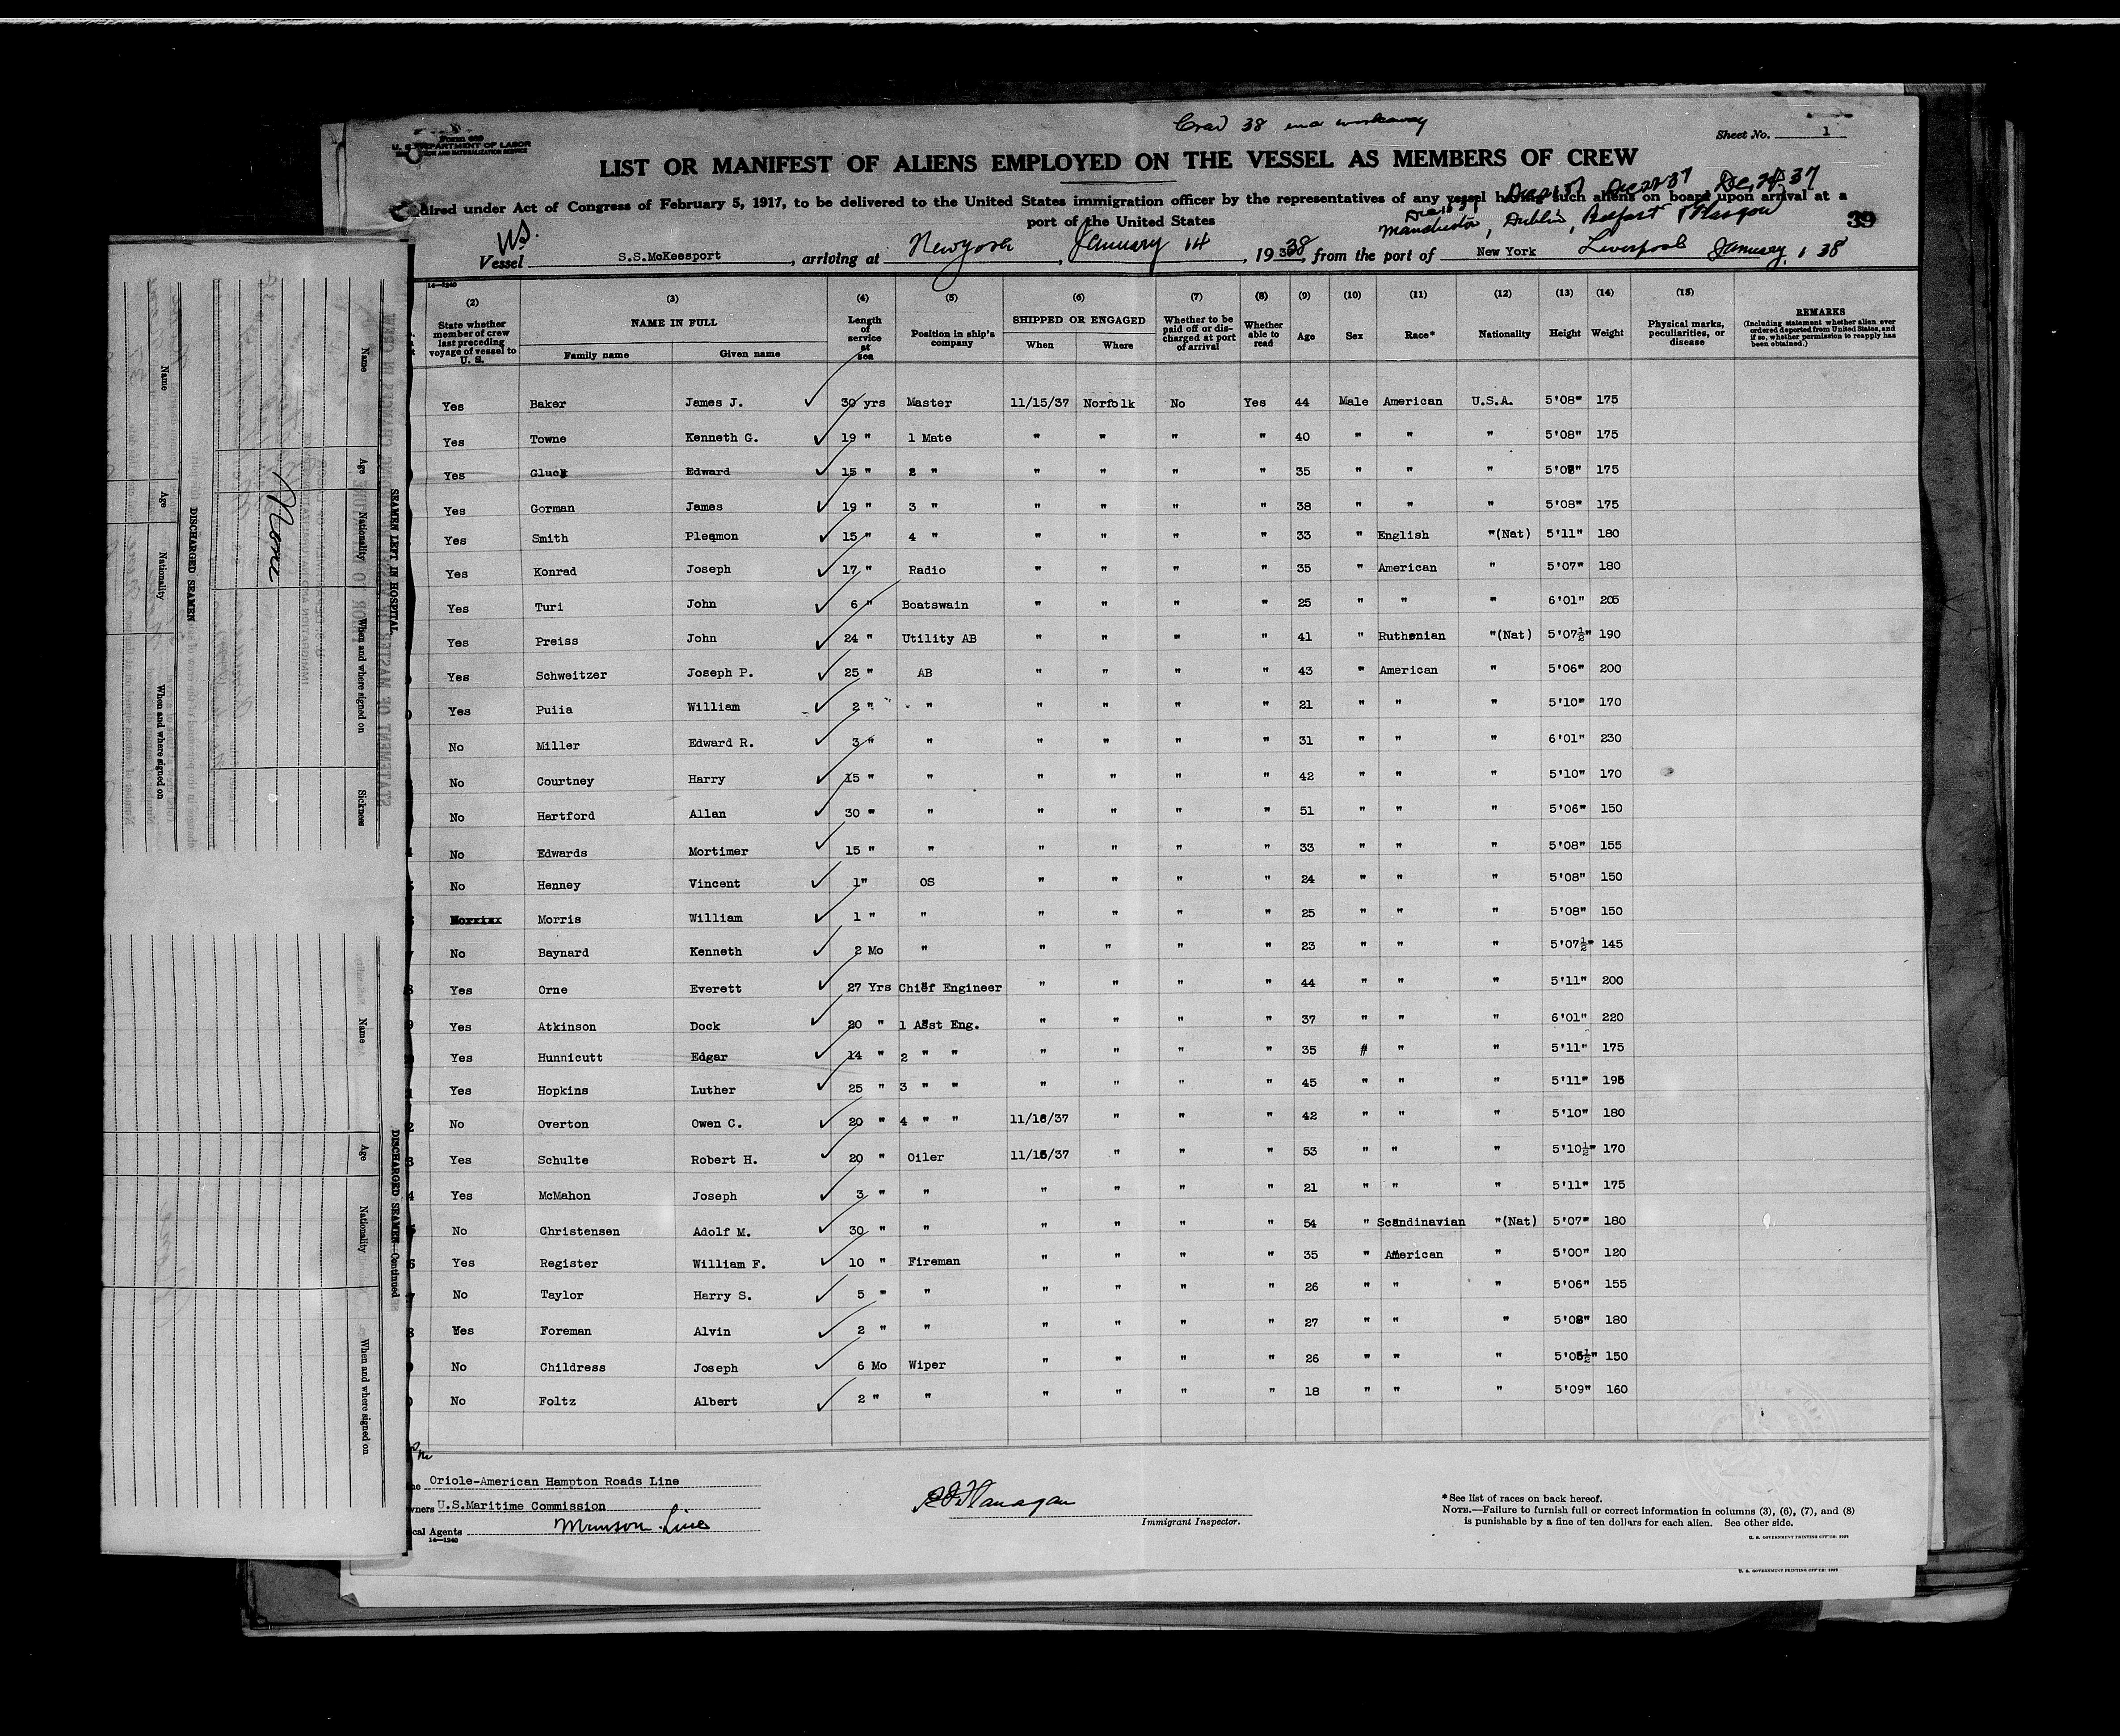 Crew 38 and workaway
Form 689
U. S. DEPARTMENT OF LABOR
IMMIGRATION AND NATURALIZATION SERVICE
Sheet No. 1
LIST OR MANIFEST OF ALIENS EMPLOYED ON THE VESSEL AS MEMBERS OF CREW
Dec 21 37 Dec 22 37 Dec. 28 37
uired under Act of Congress of February 5, 1917, to be delivered to the United States immigration officer by the representatives of any vessel having such aliens on board upon arrival at a
port of the United States
Manchester, Dublin, Belfast, Glasgow
39
U.S.
Vessel S.S.McKeesport, arriving at New York, January 14, 1938, from the port of New York Liverpool January 1 38
14-1240
(2) (3) (4) (5) (6) (7) (8) (9) (10) (11) (12) (13) (14) (15)
State whether member of crew last preceding voyage of vessel to U. S.
NAME IN FULL
Family name Given name
Length of service at sea
Position in ship's company
SHIPPED OR ENGAGED
When Where
Whether to be paid off or discharged at port of arrival
Whether able to read
Age Sex Race* Nationality Height Weight
Physical marks, peculiarities, or disease
REMARKS
(Including statement whether alien ever ordered deported from United States, and if so, whether permission to reapply has been obtained.)
Yes Baker James J. 30 yrs Master 11/15/37 Norfolk No Yes 44 Male American U.S.A. 5'08" 175
Yes Towne Kenneth G. 19 " 1 Mate " " " " 40 " " " 5'08" 175
Yes Gluck Edward 15 " 2 " " " " " 35 " " " 5'08" 175
Yes Gorman James 19 " 3 " " " " " 38 " " " 5'08" 175
Yes Smith Pleamon 15 " 4 " " " " " 33 " English "(Nat) 5'11" 180
Yes Konrad Joseph 17 " Radio " " " " 35 " American " 5'07" 180
Yes Turi John 6 " Boatswain " " " " 25 " " " 6'01" 205
Yes Preiss John 24 " Utility AB " " " " 41 " Ruthenian "(Nat) 5'07½" 190
Yes Schweitzer Joseph P. 25 " AB " " " " 43 " American " 5'06" 200
Yes Puiia William 2 " " " " " " 21 " " " 5'10" 170
No Miller Edward R. 3 " " " " " " 31 " " " 6'01" 230
No Courtney Harry 15 " " " " " " 42 " " " 5'10" 170
No Hartford Allan 30 " " " " " " 51 " " " 5'06" 150
No Edwards Mortimer 15 " " " " " " 33 " " " 5'08" 155
No Henney Vincent 1" OS " " " " 24 " " " 5'08" 150
Morris William 1 " " " " " " 25 " " " 5'08" 150
No Baynard Kenneth 2 Mo " " " " " 23 " " " 5'07½" 145
Yes Orne Everett 27 Yrs Chief Engineer " " " " 44 " " " 5'11" 200
Yes Atkinson Dock 20 " 1 Asst Eng. " " " " 37 " " " 6'01" 220
Yes Hunnicutt Edgar 14 " 2 " " " " " " 35 # " " 5'11" 175
Yes Hopkins Luther 25 " 3 " " " " " " 45 " " " 5'11" 195
No Overton Owen C. 20 " 4 " " 11/16/37 " " " 42 " " " 5'10" 180
Yes Schulte Robert H. 20 " Oiler 11/15/37 " " " 53 " " " 5'10½" 170
Yes McMahon Joseph 3 " " " " " " 21 " " " 5'11" 175
No Christensen Adolf M. 30 " " " " " " 54 " Scandinavian "(Nat) 5'07" 180
Yes Register William F. 10 " Fireman " " " " 35 " American " 5'00" 120
No Taylor Harry S. 5 " " " " " " 26 " " " 5'06" 155
Yes Foreman Alvin 2 " " " " " " 27 " " " 5'08" 180
No Childress Joseph 6 Mo Wiper " " " " 26 " " " 5'05½" 150
No Foltz Albert 2 " " " " " " 18 " " " 5'09" 160
ne Oriole-American Hampton Roads Line
wners U.S.Maritime Commission
cal Agents Munson Line
14-1240
Immigrant Inspector.
*See list of races on back hereof.
NOTE.—Failure to furnish full or correct information in columns (3), (6), (7), and (8)
is punishable by a fine of ten dollars for each alien. See other side.
U. S. GOVERNMENT PRINTING OFFICE
U. S. GOVERNMENT PRINTING OFFICE
SEAMEN LEFT IN HOSPITAL
Name Age Nationality When and where signed on Sickness
None
DISCHARGED SEAMEN
Name Age Nationality When and where signed on
DISCHARGED SEAMEN—Continued
Name Age Nationality When and where signed on